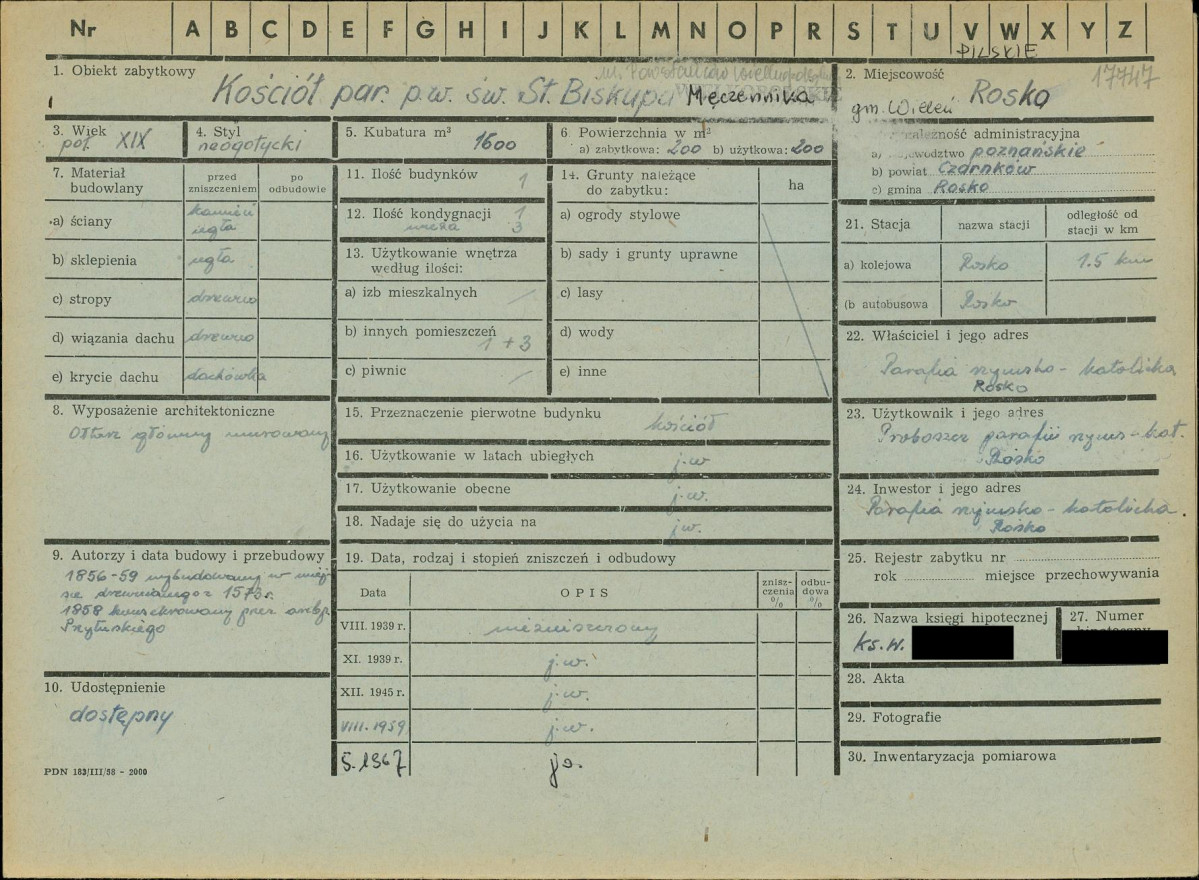 Nr A B C D E F G H I J K L M N O P R S T U V W X Y Z
PILSKIE
17747
1. Obiekt zabytkowy
Kościół par. p.w. św. St. Biskupa Męczennika
2. Miejscowość
gm. Wieleń Rosko
3. Wiek
poł. XIX
4. Styl
neogotycki
5. Kubatura m³
1600
6 Powierzchnia w m²
a) zabytkowa: 200 b) użytkowa: 200
należność administracyjna
województwo poznańskie
b) powiat Czarnków
c) gmina Rosko
7. Materiał budowlany
przed zniszczeniem
po odbudowie
a) ściany kamień cegła
b) sklepienia cegła
c) stropy drzewo
d) wiązania dachu drzewo
e) krycie dachu dachówka
8. Wyposażenie architektoniczne
Ołtarz główny murowany
9. Autorzy i data budowy i przebudowy
1856-59 wybudowany w miej-
sce drewnianego z 1573 r.
1858 konsekrowany przez arcbp.
Przyłuskiego
10. Udostępnienie
dostępny
PDN 183/III/58 - 2000
11. Ilość budynków 1
12. Ilość kondygnacji 1
wieża 3
13. Użytkowanie wnętrza
według ilości:
a) izb mieszkalnych /
b) innych pomieszczeń
1 + 3
c) piwnic /
14. Grunty należące
do zabytku:
ha
a) ogrody stylowe
b) sady i grunty uprawne
c) lasy
d) wody
e) inne
15. Przeznaczenie pierwotne budynku
kościół
16. Użytkowanie w latach ubiegłych j.w
17. Użytkowanie obecne j.w.
18. Nadaje się do użycia na jw.
19. Data, rodzaj i stopień zniszczeń i odbudowy
Data
OPIS
znisz-
czenia
%
odbu-
dowa
%
VIII. 1939 r. niezniszczony
XI. 1939 r. j.w.
XII. 1945 r. j.w.
VIII. 1959 j.w.
5.1967
21. Stacja
nazwa stacji
odległość od
stacji w km
a) kolejowa Rosko 1.5 km
(b autobusowa Rosko
22. Właściciel i jego adres
Parafia rzymsko-katolicka
Rosko
23. Użytkownik i jego adres
Proboszcz parafii rzyms-kat.
Rosko
24. Inwestor i jego adres
Parafia rzymsko-katolicka.
Rosko
25. Rejestr zabytku nr
rok miejsce przechowywania
26. Nazwa księgi hipotecznej
ks.w.
27. Numer
28. Akta
29. Fotografie
30. Inwentaryzacja pomiarowa